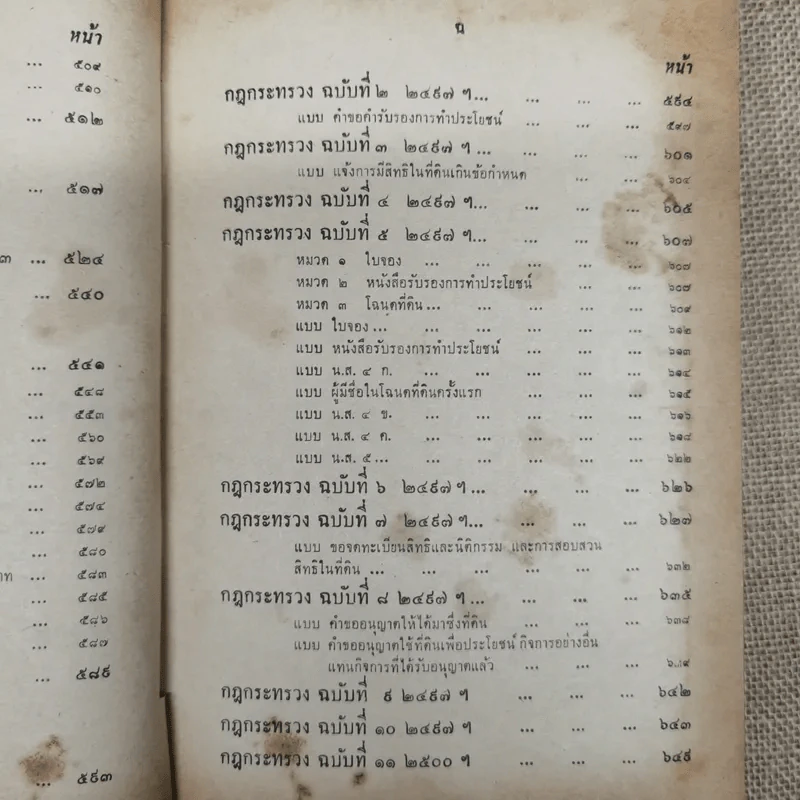 หน้า
... ๕๐๙
... ๕๑๐
... ๕๑๒
... ๕๑๗
๓ ... ๕๒๔
... ๕๔๐
... ๕๔๑
... ๕๔๘
... ๕๕๓
... ๕๖๐
... ๕๖๙
... ๕๗๒
... ๕๗๔
... ๕๗๙
... ๕๘๐
าท ... ๕๘๓
... ๕๘๕
... ๕๘๖
... ๕๘๗
... ๕๘๙
... ๕๙๓
หน้า
กฎกระทรวง ฉบับที่ ๒ ๒๔๙๗ ฯ... ... ... ... ๕๙๔
แบบ คำขอคำรับรองการทำประโยชน์ ... ... ... ๕๙๗
กฎกระทรวง ฉบับที่ ๓ ๒๔๙๗ ฯ... ... ... ... ๖๐๑
แบบ แจ้งการมีสิทธิในที่ดินเกินข้อกำหนด ... ... ๖๐๔
กฎกระทรวง ฉบับที่ ๔ ๒๔๙๗ ฯ... ... ... ... ๖๐๕
กฎกระทรวง ฉบับที่ ๕ ๒๔๙๗ ฯ... ... ... ... ๖๐๗
หมวด ๑ ใบจอง ... ... ... ... ... ๖๐๘
หมวด ๒ หนังสือรับรองการทำประโยชน์ ... ... ...
หมวด ๓ โฉนดที่ดิน... ... ... ... ... ๖๐๙
แบบ ใบจอง ... ... ... ... ... ๖๑๒
แบบ หนังสือรับรองการทำประโยชน์ ... ... ... ๖๑๓
แบบ น.ส. ๔ ก. ... ... ... ... ... ๖๑๔
แบบ ผู้มีชื่อในโฉนดที่ดินครั้งแรก ... ... ... ๖๑๕
แบบ น.ส. ๔ ข. ... ... ... ... ... ๖๑๖
แบบ น.ส. ๔ ค. ... ... ... ... ... ๖๑๘
แบบ น.ส. ๕ ... ... ... ... ... ๖๒๒
กฎกระทรวง ฉบับที่ ๖ ๒๔๙๗ ฯ ... ... ... ... ๖๒๖
กฎกระทรวง ฉบับที่ ๗ ๒๔๙๗ ฯ... ... ... ... ๖๒๗
แบบ ขอจดทะเบียนสิทธิและนิติกรรม และการสอบสวน
สิทธิในที่ดิน ... ... ... ... ... ๖๓๒
กฎกระทรวง ฉบับที่ ๘ ๒๔๙๗ ฯ ... ... ... ... ๖๓๕
แบบ คำขออนุญาตให้ได้มาซึ่งที่ดิน ... ... ... ๖๓๘
แบบ คำขออนุญาตใช้ที่ดินเพื่อประโยชน์ กิจการอย่างอื่น
แทนกิจการที่ได้รับอนุญาตแล้ว ... ... ...
กฎกระทรวง ฉบับที่ ๙ ๒๔๙๗ ฯ ... ... ... ๖๔๒
กฎกระทรวง ฉบับที่ ๑๐ ๒๔๙๗ ฯ ... ... ... ๖๔๓
กฎกระทรวง ฉบับที่ ๑๑ ๒๕๐๐ ฯ ... ... ... ๖๔๙